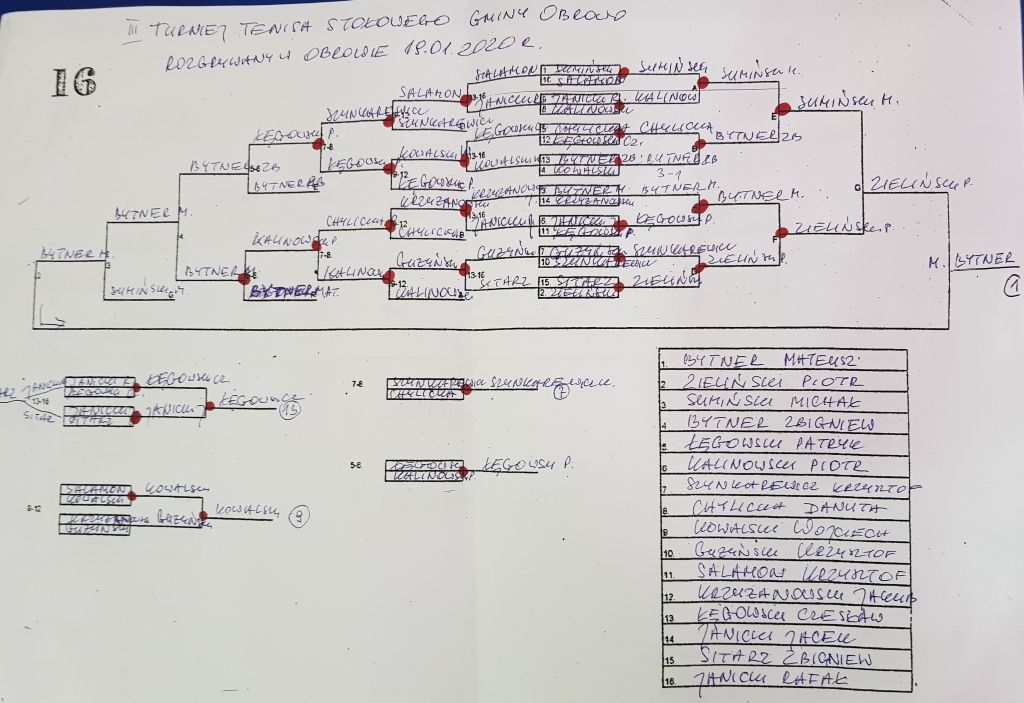 III TURNIEJ TENISA STOŁOWEGO GMINY OBROWO
ROZGRYWANY W OBROWIE 19.01.2020 R.
16
SALAMON
1 SUMIŃSKI
16 SALAMON
SUMIŃSKI
SUMIŃSKI M.
SALAMON
13-16
JANICKI R.
9 JANICKI R.
8 KALINOWSKI
KALINOW
A
SUMIŃSKI M.
E
SZYNKAREWICZ
9-12
SZYNKAREWICZ
ŁĘGOWSKI P.
7-8
ŁĘGOWSKI
5 CHYLICKA
12 ŁĘGOWSKI CZ.
CHYLICKA
BYTNER ZB
B
ŁĘGOWSKI P.
KOWALSKI
13-16
KOWALSKI
13 BYTNER ZB.
4 KOWALSKI
BYTNER ZB
3-1
9-12
ŁĘGOWSKI P.
BYTNER ZB
BYTNER ZB
KRZYŻANOWSKI
3 BYTNER M.
14 KRZYŻANOWSKI
BYTNER M.
BYTNER M.
KRZYŻANOW
13-16
JANICKI J.
6 JANICKI J.
11 ŁĘGOWSKI P.
ŁĘGOWSKI P.
ZIELIŃSKI P.
G
ZIELIŃSKI P.
F
CHYLICKA
CHYLICKA
BYTNER M.
4
KALINOWSKI P.
7-8
KALINOW
GUZYŃSKI
7 GUZYŃSKI
10 SZYNKAREWICZ
SZYNKAREWICZ
ZIELIŃSKI P.
D
GUZYŃSKI
13-16
SITARZ
15 SITARZ
2 ZIELIŃSKI
ZIELIŃSKI
9-12
KALINOWSKI
BYTNER M.
BYTNER M.
2
3
SUMIŃSKI M.
G
M. BYTNER
1
JANICKI
13-16
SITARZ
JANICKI R.
ŁĘGOWSKI CZ
JANICKI
SITARZ
JANICKI J
ŁĘGOWSKI CZ
13
7-8
SZYNKAREWICZ
CHYLICKA
SZYNKAREWICZ K.
7
5-6
ŁĘGOWSKI
KALINOWSKI P.
ŁĘGOWSKI P.
9-12
SALAMON
KOWALSKI
KOWALSKI
KRZYŻANOWSKI
GUZIŃSKI
GUZYŃSKI
KOWALSKI
9
1. BYTNER MATEUSZ
2 ZIELIŃSKI PIOTR
3 SUMIŃSKI MICHAŁ
4 BYTNER ZBIGNIEW
5 ŁĘGOWSKI PATRYK
6 KALINOWSKI PIOTR
7 SZYNKAREWICZ KRZYSZTOF
8. CHYLICKA DANUTA
9 KOWALSKI WOJCIECH
10. GUZYŃSKI KRZYSZTOF
11. SALAMON KRZYSZTOF
12. KRZYŻANOWSKI JAKUB
13 ŁĘGOWSKI CZESŁAW
14 JANICKI JACEK
15 SITARZ ZBIGNIEW
16. JANICKI RAFAŁ